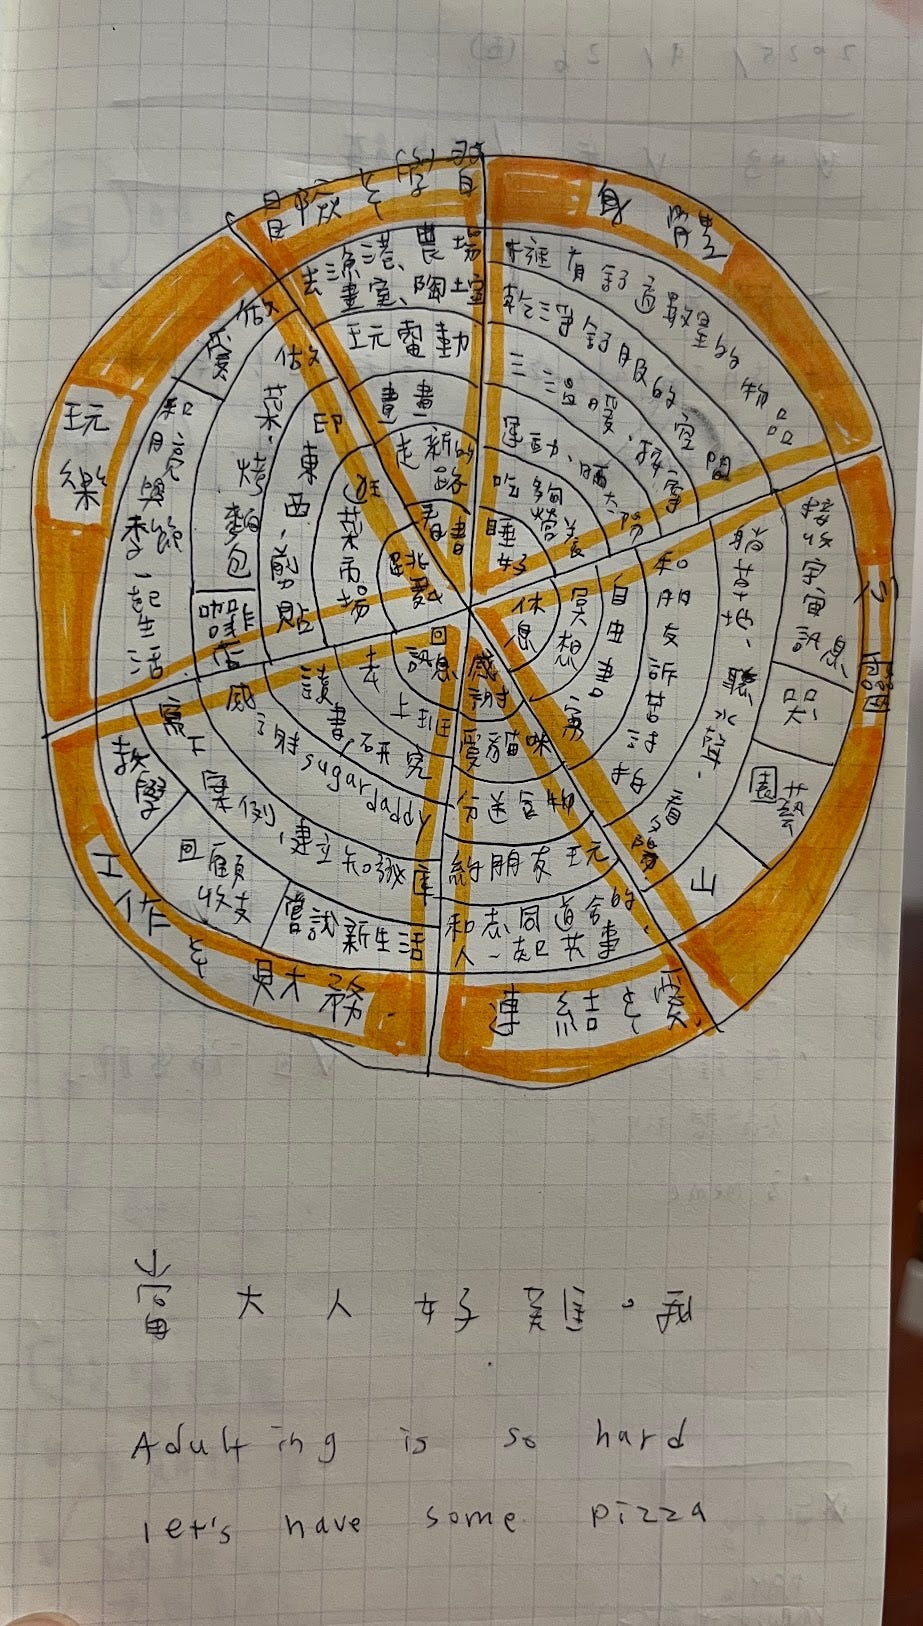 冒險與學習
去漁港、農場
畫室、陶土室
玩電動
畫畫
走新的
路
看書
身體
擁有舒適數量的物品
乾淨舒服的空間
三溫暖、按摩
運動、曬太陽
吃夠營養
睡好
心靈
接收宇宙訊息
哭
園藝
山
躺草地、聽水聲、看夕陽
和朋友訴苦討拍
自由書寫
冥想
休息
連結與愛
感謝
愛貓咪
分送食物
約朋友玩
和志同道合的
人一起共事
工作與財務
回
訊息
去上班
讀書研究
感謝sugar daddy
寫下案例,建立知識庫
教學
回顧
收支
嘗試新生活
玩樂
做愛
和月亮與季節一起生活
做菜、烤麵包
咖啡店
印東西、剪貼
逛菜市場
跳舞
當大人好難。我
Adulting is so hard
let's have some pizza